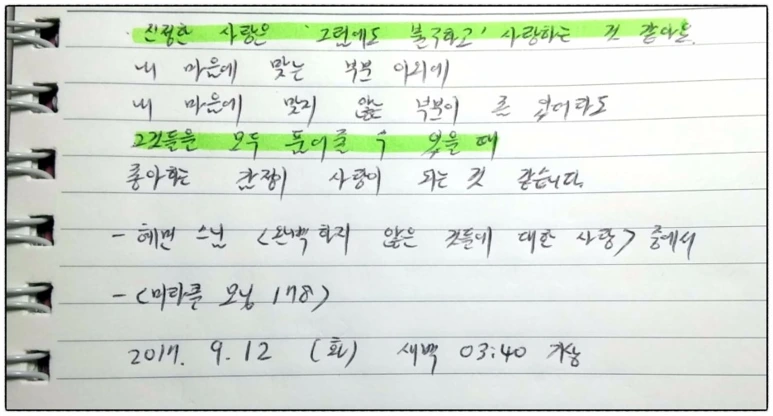 · 진정한 사랑은 '그럼에도 불구하고' 사랑하는 것 같아요.
내 마음에 맞는 부분 이외에
내 마음에 맞지 않는 부분이 좀 있더라도
그것들을 모두 품어줄 수 있을 때
좋아하는 감정이 사랑이 되는 것 같습니다.
- 혜민 스님 <완벽하지 않은 것들에 대한 사랑> 중에서
- <미라클 모닝 178>
2017. 9. 12 (화) 새벽 03:40 기상